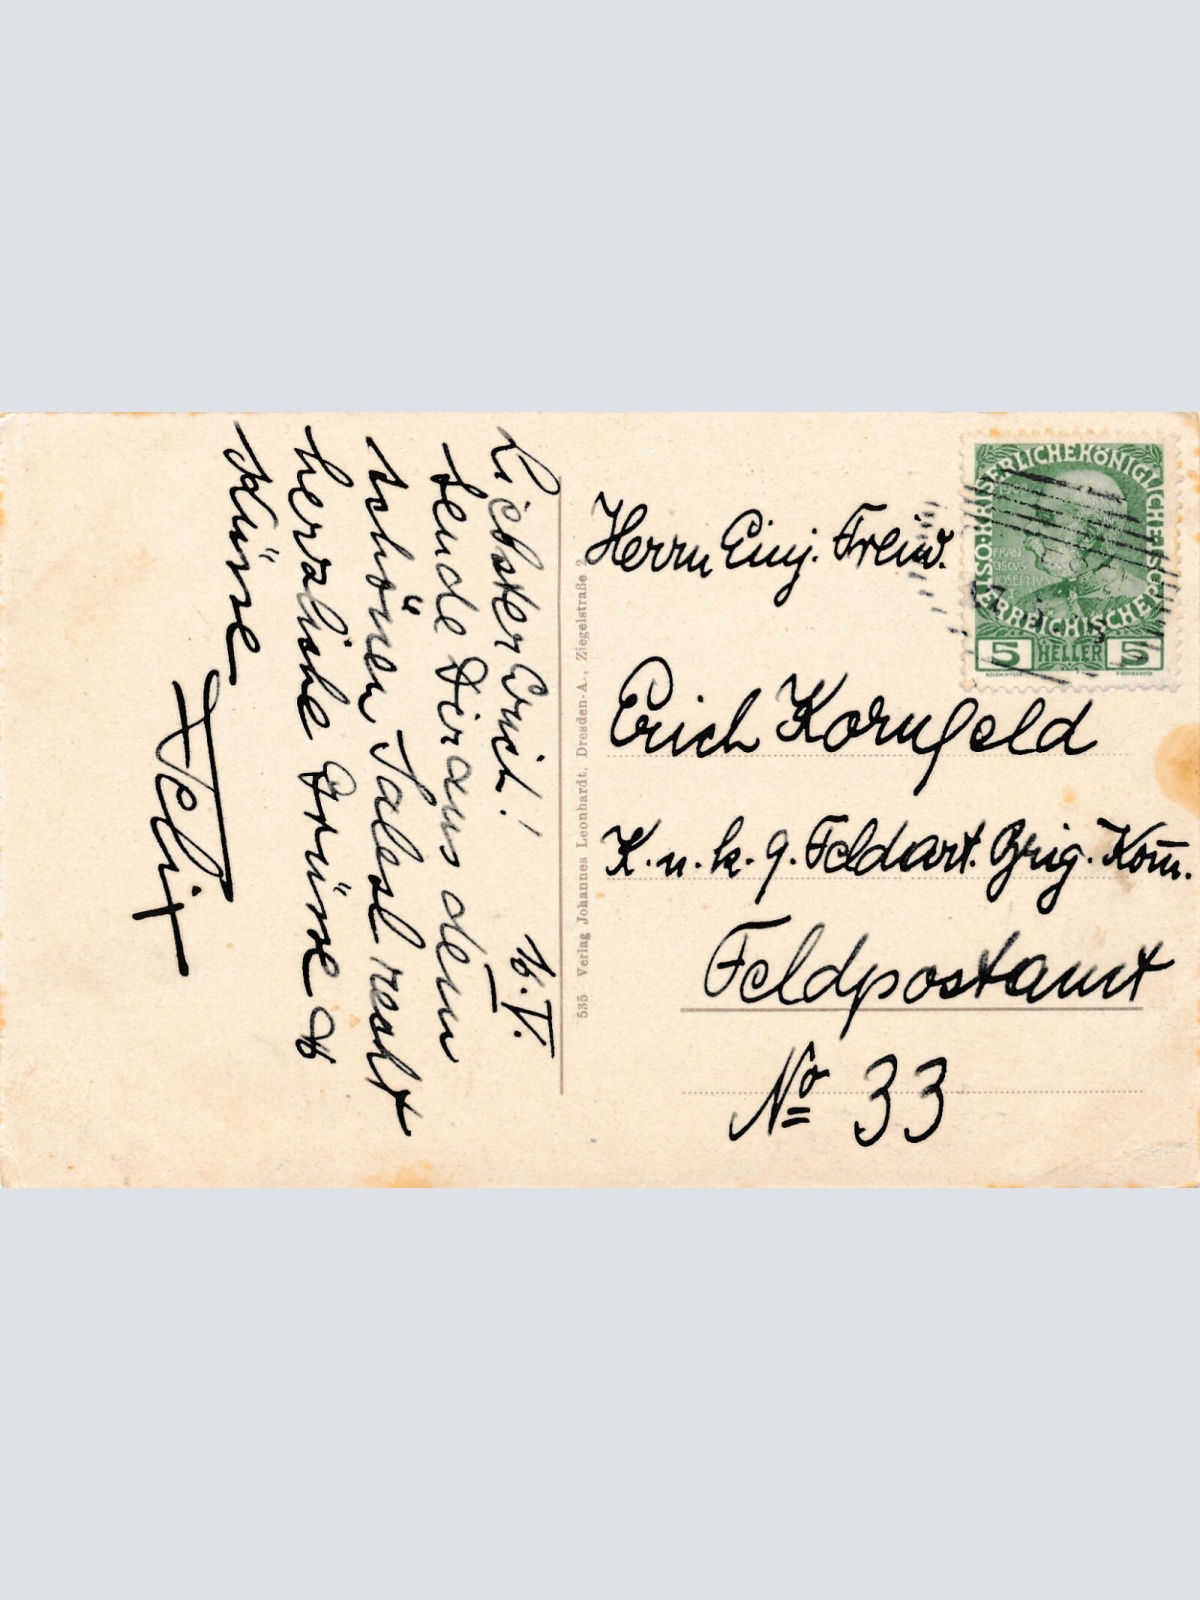 Liebster Erich! 16.V.
sende Dir aus dem
schönen Salesl recht
herzliche Grüsse &
Küsse
Felix
535 Verlag Johannes Leonhardt, Dresden-A., Ziegelstraße 2
KAISERLICHE KÖNIGLICHE
ÖSTERREICHISCHE POST
FRAN
CISCVS
IOSEPHVS
5 HELLER 5
Herrn Einj. Freiw.
Erich Kornfeld
K. u. k. 9. Feldart. Brig. Kom̄.
Feldpostamt
No 33